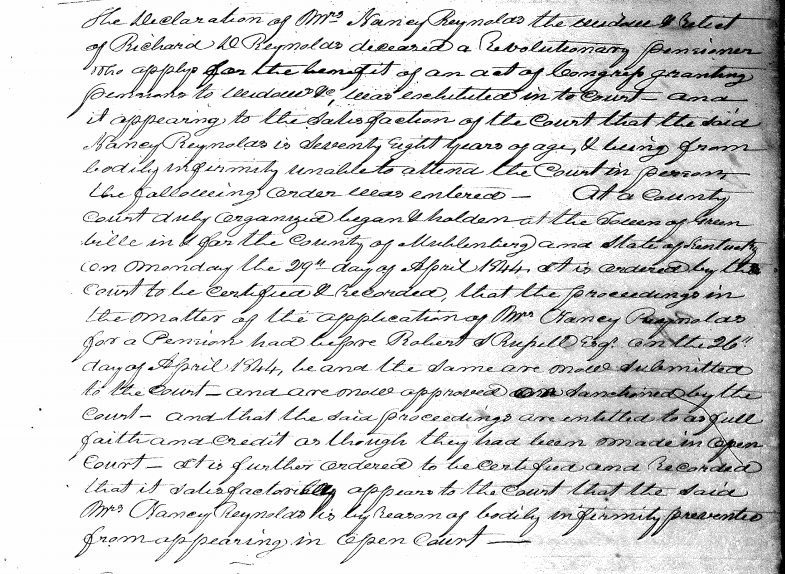 The Declaration of Mrs Nancy Reynolds the widow & Relict
of Richard D Reynolds deceased a Revolutionary pensioner
who applys for the benefit of an act of Congress granting
pensions to widows &c, was exhibited in to Court — and
it appearing to the satisfaction of the Court that the said
Nancy Reynolds is seventy Eight years of age, & being from
bodily infirmity unable to attend the Court in person,
the following order was entered — At a County
Court duly organized began & holden at the Town of Green
ville in & for the County of Muhlenberg and State of Kentucky
on monday the 29th day of April 1844, It is ordered by the
Court to be certified & Recorded, that the proceedings in
the matter of the application of Mrs Nancy Reynolds
for a Pension had before Robert S Russell Esqr on the 26th
day of April 1844, be and the same are now submitted
to the Court — and are now approved sanctioned by the
Court — and that the said proceedings are entitled to as full
faith and credit as though they had been made in open
Court — It is further ordered to be certified and Recorded
that it satisfactorily appears to the Court that the said
Mrs Nancy Reynolds is by Reason of bodily infirmity prevented
from appearing in open Court —